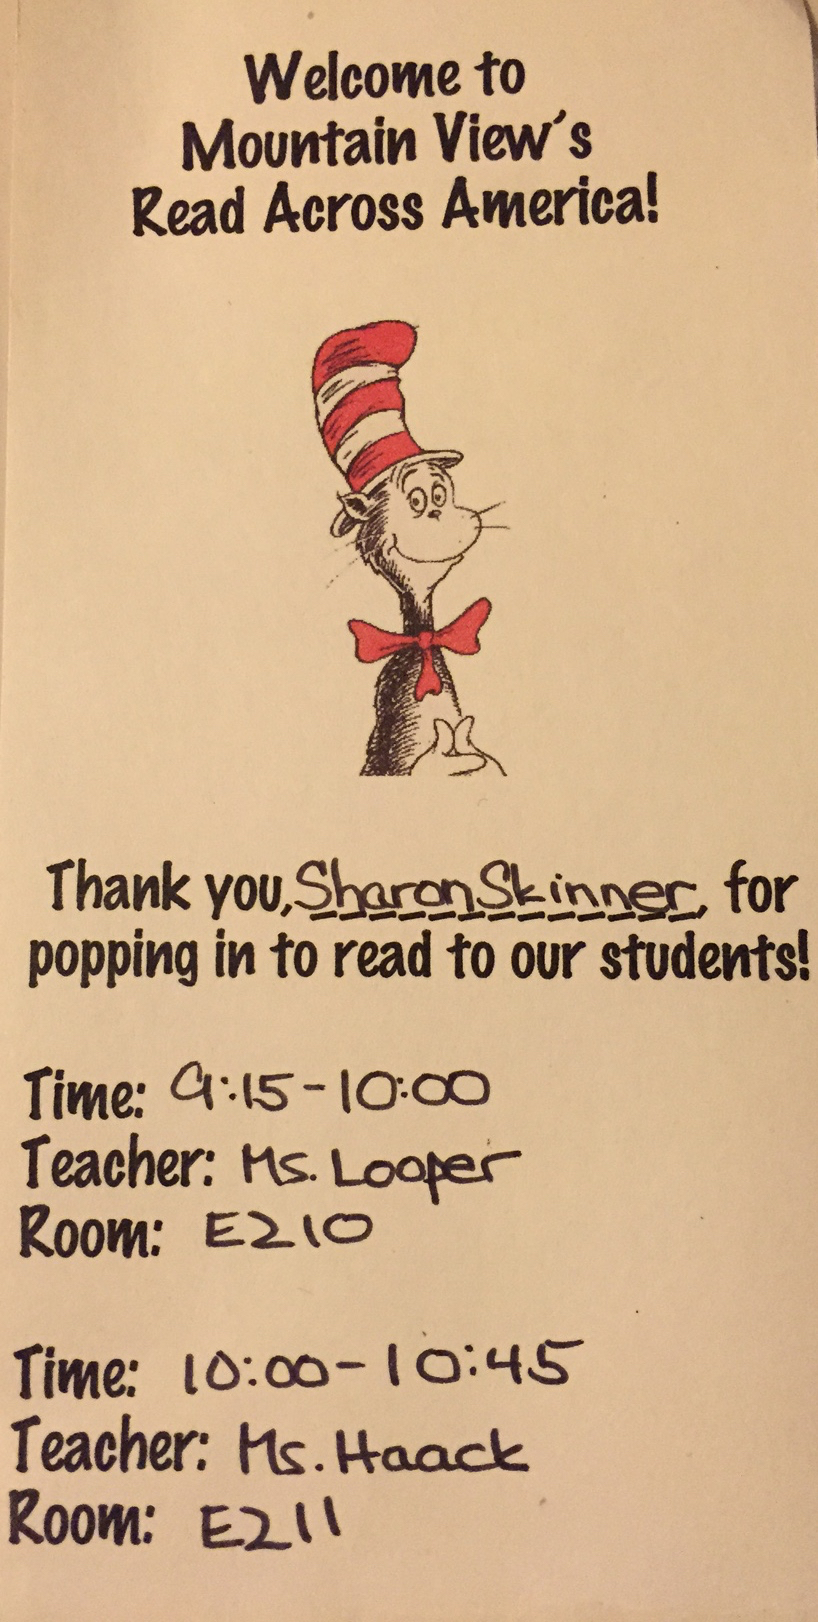 Welcome to
Mountain View's
Read Across America!
Thank you, Sharon Skinner, for
popping in to read to our students!
Time: 9:15-10:00
Teacher: Ms. Looper
Room: E210
Time: 10:00-10:45
Teacher: Ms. Haack
Room: E211